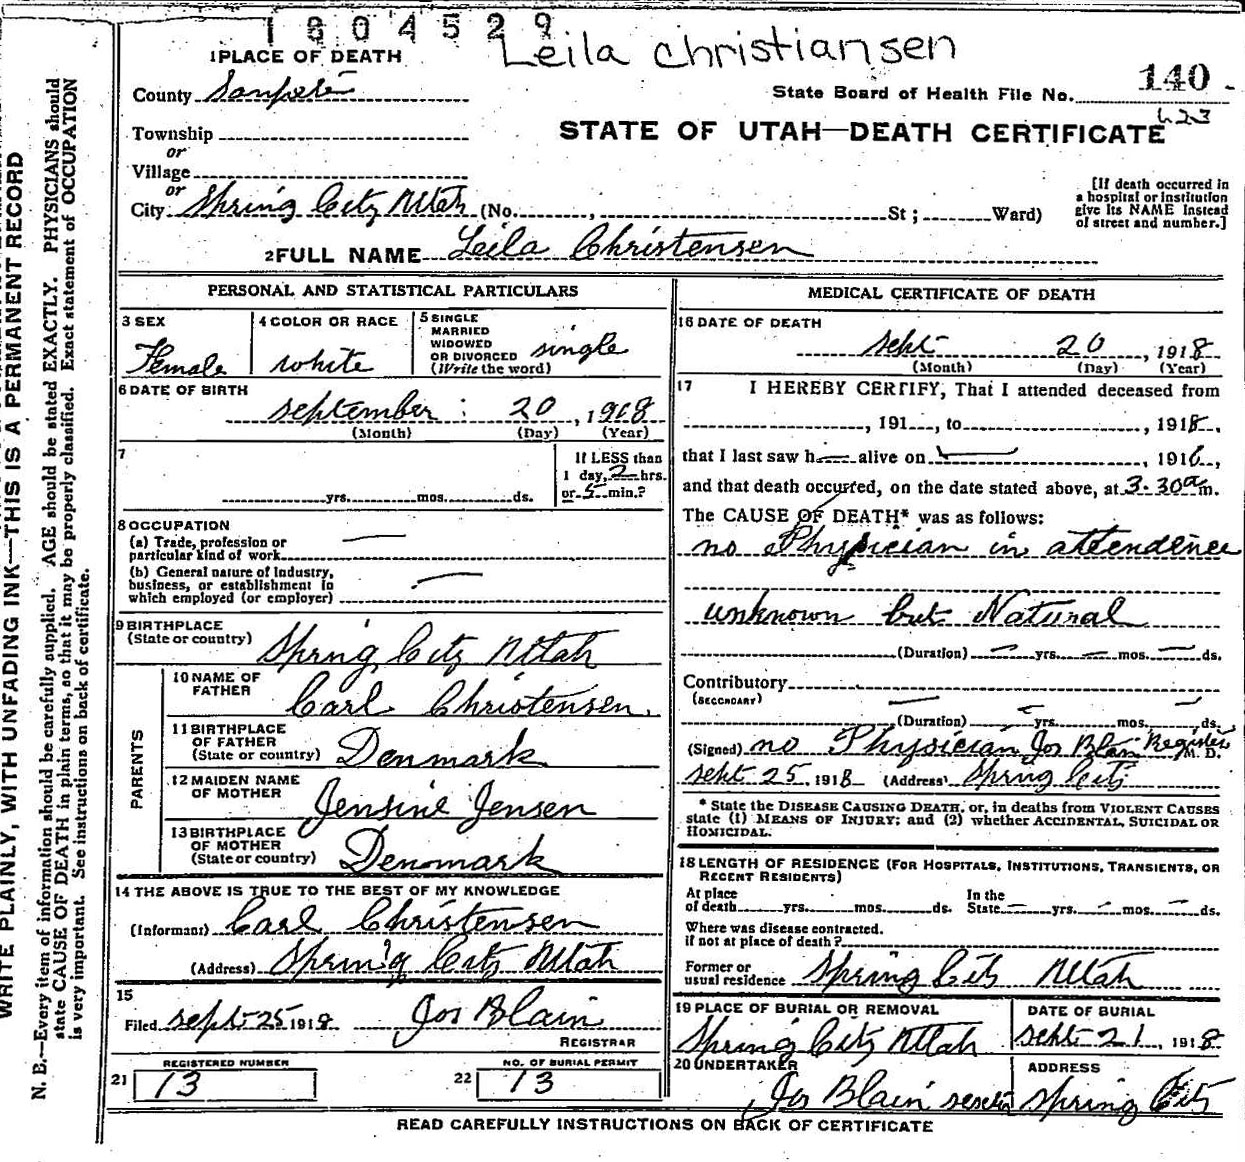 1804529
Leila Christiansen
1 PLACE OF DEATH
County Sanpete
State Board of Health File No. 140
623
Township
or
Village
or
City Spring City Utah (No. , St ; Ward)
STATE OF UTAH—DEATH CERTIFICATE
[If death occurred in
a hospital or institution
give its NAME instead
of street and number.]
2 FULL NAME Leila Christensen
PERSONAL AND STATISTICAL PARTICULARS
3 SEX
Female
4 COLOR OR RACE
white
5 SINGLE
MARRIED
WIDOWED
OR DIVORCED
(Write the word)
single
6 DATE OF BIRTH
september 20, 1918
(Month) (Day) (Year)
7
yrs. mos. ds.
If LESS than
1 day, 2 hrs.
or 5 min.?
8 OCCUPATION
(a) Trade, profession or
particular kind of work
(b) General nature of Industry,
business, or establishment in
which employed (or employer)
9 BIRTHPLACE
(State or country)
Spring City Utah
PARENTS
10 NAME OF
FATHER
Carl Christensen.
11 BIRTHPLACE
OF FATHER
(State or country)
Denmark
12 MAIDEN NAME
OF MOTHER
Jensine Jensen
13 BIRTHPLACE
OF MOTHER
(State or country)
Denmark
14 THE ABOVE IS TRUE TO THE BEST OF MY KNOWLEDGE
(Informant) Carl Christensen
(Address) Spring City Utah
15
Filed sept 25 1918 Jos Blain
REGISTRAR
REGISTERED NUMBER
21 13
NO. OF BURIAL PERMIT
22 13
MEDICAL CERTIFICATE OF DEATH
16 DATE OF DEATH
sept 20, 1918
(Month) (Day) (Year)
17 I HEREBY CERTIFY, That I attended deceased from
, 191 , to , 1918,
that I last saw h alive on , 191 ,
and that death occurred, on the date stated above, at 3-30 a m.
The CAUSE OF DEATH* was as follows:
no Physician in attendence
unknown but Natural
(Duration) yrs. mos. ds.
Contributory
(SECONDARY)
(Duration) yrs. mos. ds.
(Signed) no Physician Jos Blain Register M. D.
sept 25 1918 (Address) Spring City
* State the DISEASE CAUSING DEATH, or, in deaths from VIOLENT CAUSES
state (1) MEANS OF INJURY; and (2) whether ACCIDENTAL, SUICIDAL OR
HOMICIDAL.
18 LENGTH OF RESIDENCE (FOR HOSPITALS, INSTITUTIONS, TRANSIENTS, OR
RECENT RESIDENTS)
At place
of death yrs. mos. ds.
In the
State yrs. mos. ds.
Where was disease contracted.
if not at place of death?
Former or
usual residence Spring City Utah
19 PLACE OF BURIAL OR REMOVAL
Spring City Utah
DATE OF BURIAL
sept 21, 1918
20 UNDERTAKER
Jos Blain
ADDRESS
spring City
READ CAREFULLY INSTRUCTIONS ON BACK OF CERTIFICATE
WRITE PLAINLY, WITH UNFADING INK—THIS IS A PERMANENT RECORD
N. B.—Every item of information should be carefully supplied. AGE should be stated EXACTLY. PHYSICIANS should
state CAUSE OF DEATH in plain terms, so that it may be properly classified. Exact statement of OCCUPATION
is very important. See instructions on back of certificate.